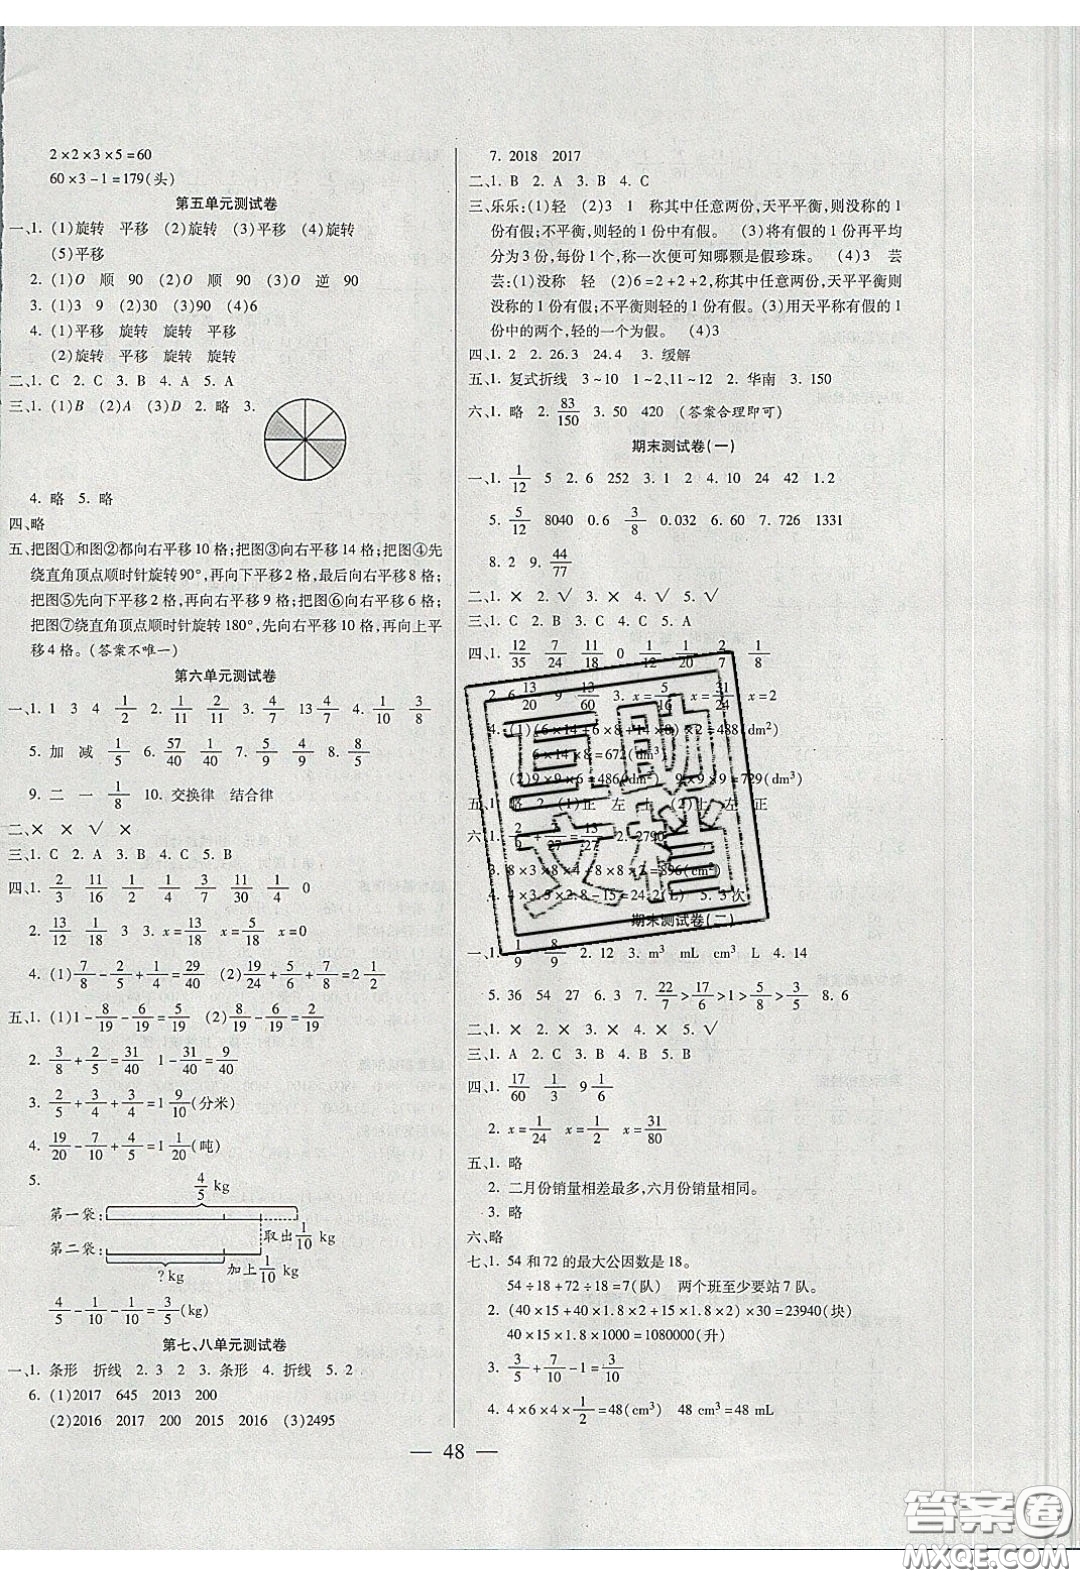 2×2×3×5=60
60×3-1=179(头)
第五单元测试卷
一、1. (1)旋转 平移 (2)旋转 (3)平移 (4)旋转
(5)平移
2. (1)O 顺 90 (2)O 顺 90 (3)O 逆 90
3. (1)3 9 (2)30 (3)90 (4)6
4. (1)平移 旋转 旋转 平移
(2)旋转 平移 旋转 旋转
二、1. C 2. C 3. B 4. A 5. A
三、1. (1)B (2)A (3)D 2. 略 3.
4. 略 5. 略
四、略
五、把图①和图②都向右平移10格;把图③向右平移14格;把图④先
绕直角顶点顺时针旋转90°,再向下平移2格,最后向右平移8格;
把图⑤先向下平移2格,再向右平移9格;把图⑥向右平移6格;
把图⑦绕直角顶点顺时针旋转180°,先向右平移10格,再向上平
移4格。(答案不唯一)
第六单元测试卷
一、1. 1 3 4 1/2 2. 1/11 2/11 3. 4/7 13 4/7 4. 1/10 3/8
5. 加 减 1/5 6. 57/40 1/40 7. 5/9 4/9 8. 8/5
9. 二 一 1/8 10. 交换律 结合律
二、× × √ ×
三、1. C 2. A 3. B 4. C 5. B
四、1. 2/3 11/16 1/2 11/16 1/4 0
2. 13/12 1/18 3 3. x=19/40 x=1/18 x=0
4. (1)7/8-1/5+1/20=29/40 (2)19/24+5/6+7/8=2 1/2
五、1. (1)1-8/19-6/19=5/19 (2)8/19-6/19=2/19
2. 3/8+2/5=31/40 1-31/40=9/40
3. 2/5+3/4+3/4=1 9/10(分米)
4. 19/20-7/10+4/5=1 1/20(吨)
5. 4/5 kg
第一袋:
取出1/10 kg
第二袋:
加上1/10 kg
?kg
4/5-1/10-1/10=3/5(kg)
第七、八单元测试卷
一、1. 条形 折线 2. 3 2 3. 条形 4. 折线 5. 2
6. (1)2017 645 2013 200
(2)2016 2017 200 2015 2016 (3)2495
7. 2018 2017
二、1. B 2. A 3. B 4. C
三、乐乐:(1)轻 (2)3 1 称其中任意两份,天平平衡,则没称的1
份有假;不平衡,则轻的1份中有假。 (3)将有假的1份再平均
分为3份,每份1个,称一次便可知哪颗是假珍珠。 (4)3 芸
芸:(1)没称 轻 (2)6=2+2+2,称其中任意两份,天平平衡则
没称的1份有假;不平衡则轻的1份有假。(3)用天平称有假的1
份中的两个,轻的一个为假。 (4)3
四、1. 2 2. 26.3 24.4 3. 缓解
五、1. 复式折线 3~10 1~2、11~12 2. 华南 3. 150
六、1. 略 2. 83/150 3. 50 420 (答案合理即可)
期末测试卷(一)
一、1. 1/12 5 2. 6 252 3. 1 2 4. 10 24 42 1.2
5. 5/12 8040 0.6 3/8 0.032 6. 60 7. 726 1331
8. 2 9. 44/77
二、1. × 2. √ 3. × 4. × 5. √
三、1. B 2. C 3. B 4. C 5. A
四、1. 12/35 7/24 11/18 0 1/12 1/20 2/7 1/8
2. 6 13/20 9 13/60 3. x=5/16 x=31/24 x=2
4. (1)(6×14+6×8+14×8)×2=488(dm²)
6×14×8=672(dm³)
(2)9×9×6=486(dm²) 9×9×9=729(dm³)
五、1. 略 2. (1)正 左 上 (2)上 左 正
六、1. 2/9+7/27=13/27 2. 2790
3. 8×3×8×4+8×8×2=896(cm²)
4. 4×3.5×2.8-15=24.2(L) 5. 3次
期末测试卷(二)
一、1. 1/9 8/9 2. 12 3. m³ mL cm² 4. 14
5. 36 54 27 6. 3 7. 22/7>17/6>1>5/8>3/5 8. 6
二、1. × 2. × 3. × 4. × 5. √
三、1. A 2. C 3. B 4. B 5. C
四、1. 17/60 1/3 9 1/6
2. x=1/24 x=1/2 x=31/80
五、1. 略
2. 二月份销量相差最多,六月份销量相同。
3. 略
六、略
七、1. 54和72的最大公因数是18。
54÷18+72÷18=7(队) 两个班至少要站7队。
2. (40×15+40×1.8×2+15×1.8×2)×30=23940(块)
40×15×1.8×1000=1080000(升)
3. 3/5+7/10-1=3/10
4. 4×6×4×1/2=48(cm³) 48 cm³=48 mL
— 48 —
互助
文档
答案卷
MXQE.COM